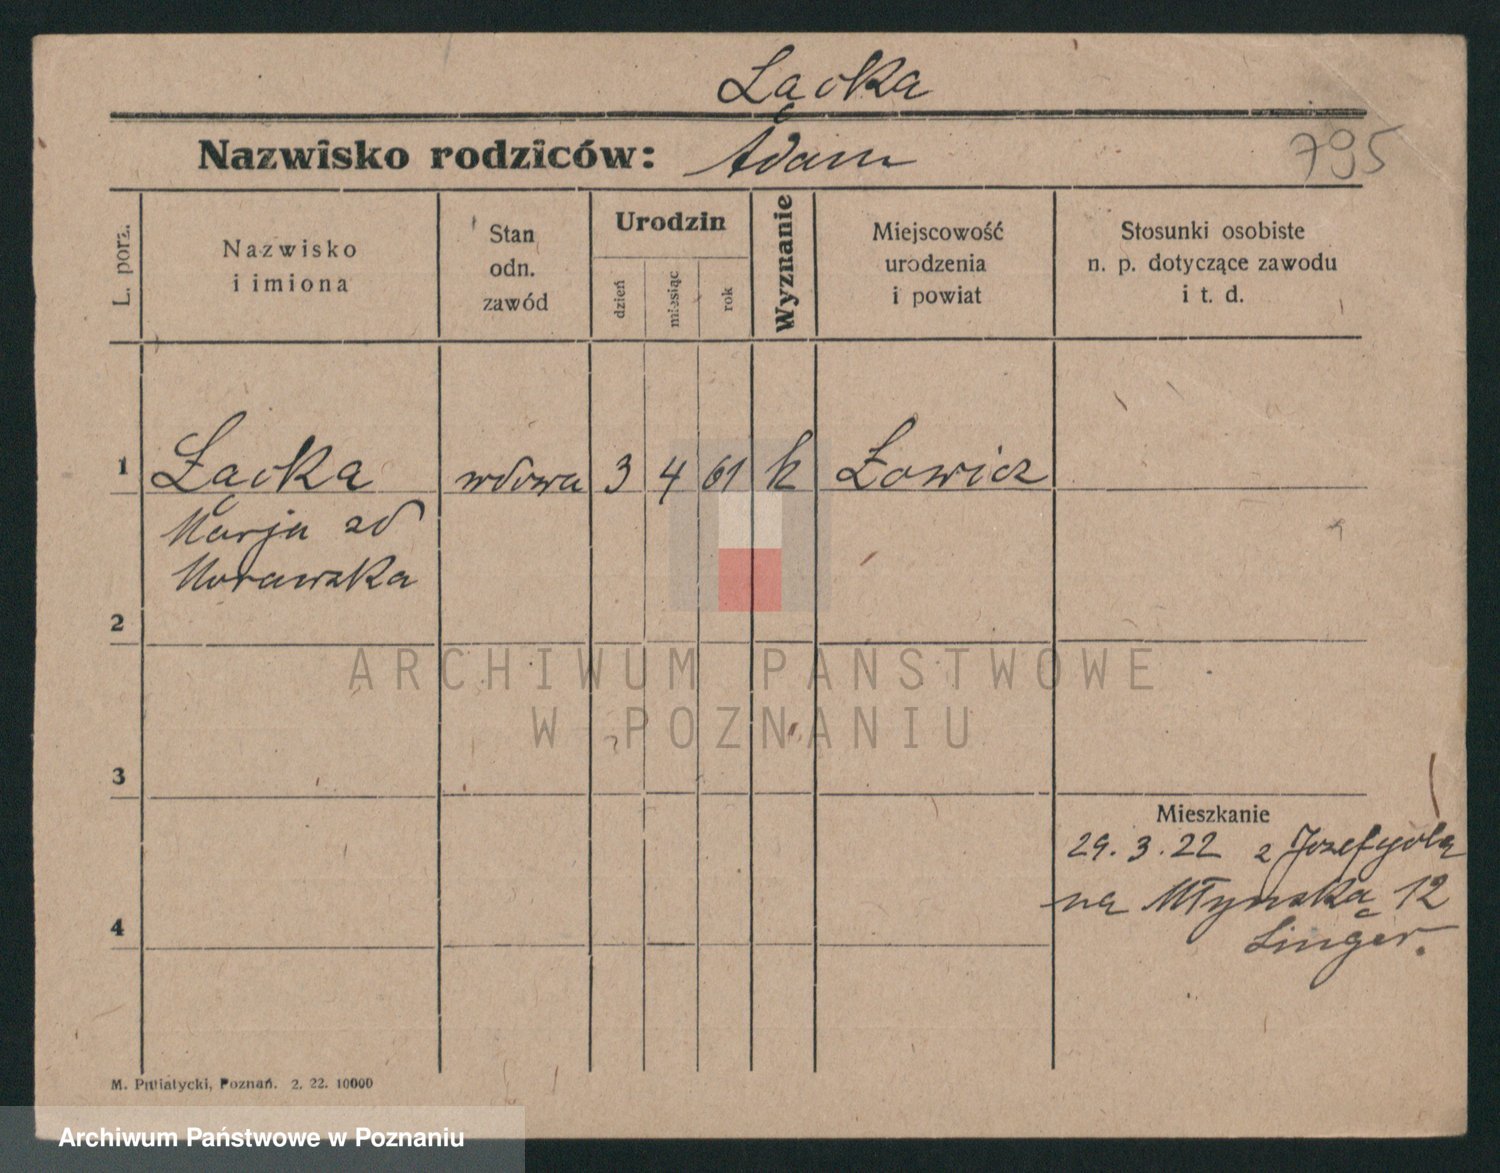 Łącka
Nazwisko rodziców: Adam
795
L. porz.
Nazwisko
i imiona
Stan
odn.
zawód
Urodzin
dzień
miesiąc
rok
Wyznanie
Miejscowość
urodzenia
i powiat
Stosunki osobiste
n. p. dotyczące zawodu
i t. d.
1 Łącka wdowa 3 4 61 k Łowicz
Marja zd
Morawska
2
3
4
Mieszkanie
29. 3. 22 z
na Młyńską 12
Singer.
M. Putiatycki, Poznań. 2. 22. 10000
ARCHIWUM PAŃSTWOWE
W POZNANIU
Archiwum Państwowe w Poznaniu